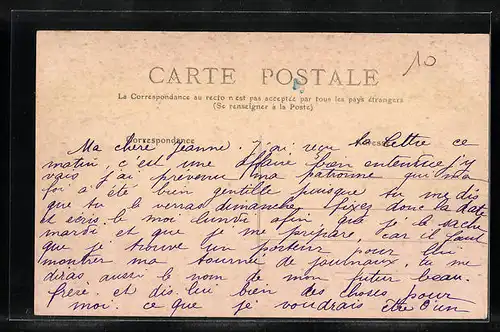 10
CARTE POSTALE
La Correspondance au recto n'est pas acceptée par tous les pays étrangers
(Se renseigner à la Poste)
Correspondance
Ma chère Jeanne. J'ai reçu ta lettre ce
matin, c'est une affaire bien entendue j'y
vais j'ai prévenu ma patronne qui ma
foi a été bien gentille puisque tu me dis
que tu le verras dimanche, fixez donc la date
et écris le moi lundi afin que je le sache
mardi et que je me prépare, car il faut
que je trouve un porteur pour lui
montrer ma tournée de journaux, tu me
diras aussi le nom de mon futur beau.
frère et dis-lui bien des choses pour
moi. ce que je voudrais être d'un